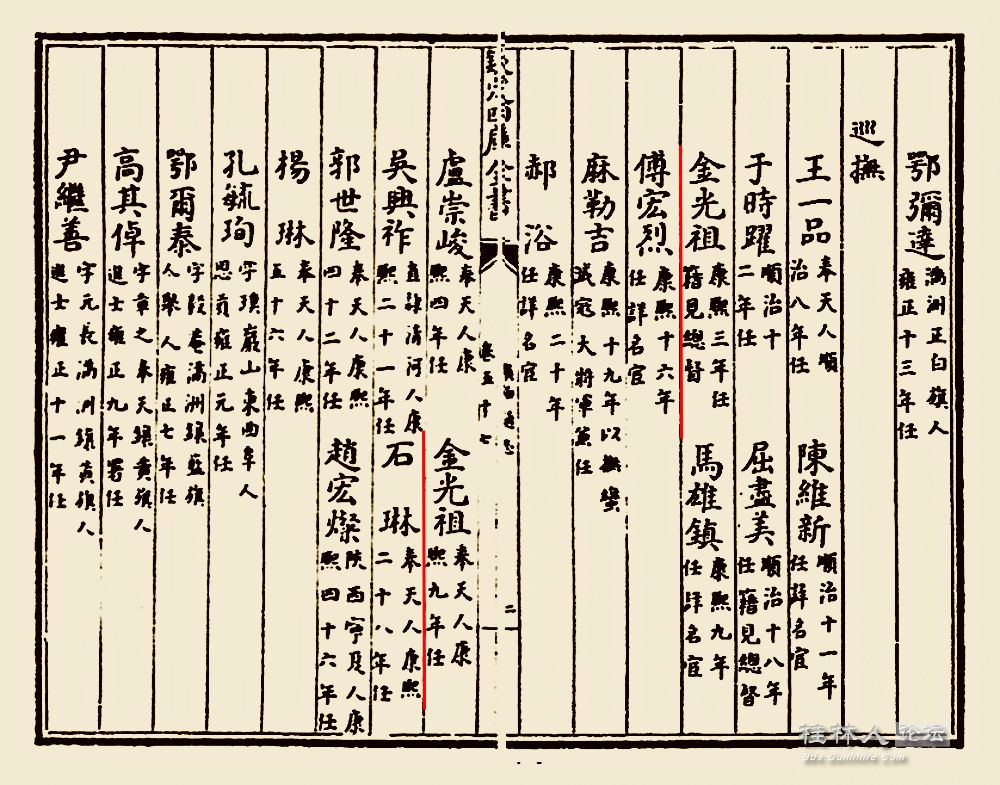 鄂彌達 滿洲正白旗人雍正十三年任
巡撫
王一品 奉天人順治八年任 陳維新 順治十一年任詳名宦
于時躍 順治十二年任 屈盡美 順治十八年任籍見總督
金光祖 康熙三年任籍見總督 馬雄鎮 康熙九年任詳名宦
傅宏烈 康熙十六年任詳名宦
麻勒吉 康熙十九年以撫蠻滅寇大將軍兼任
郝 浴 康熙二十年任詳名宦
欽定四庫全書
廣西通志
卷五十七
二
盧崇峻 奉天人康熙四年任 金光祖 奉天人康熙九年任
吳興祚 直隸清河人康熙二十一年任 石 琳 奉天人康熙二十八年任
郭世隆 奉天人康熙四十二年任 趙宏燦 陝西寧夏人康熙四十六年任
楊 琳 奉天人康熙五十六年任
孔毓珣 字璞巖山東曲阜人恩貢雍正元年任
鄂爾泰 字毅庵滿洲鑲藍旗人舉人雍正七年任
高其倬 字章之奉天鑲黃旗人進士雍正九年署任
尹繼善 字元長滿洲鑲黃旗人進士雍正十一年任
桂林人论坛
bbs.guilinlife.com